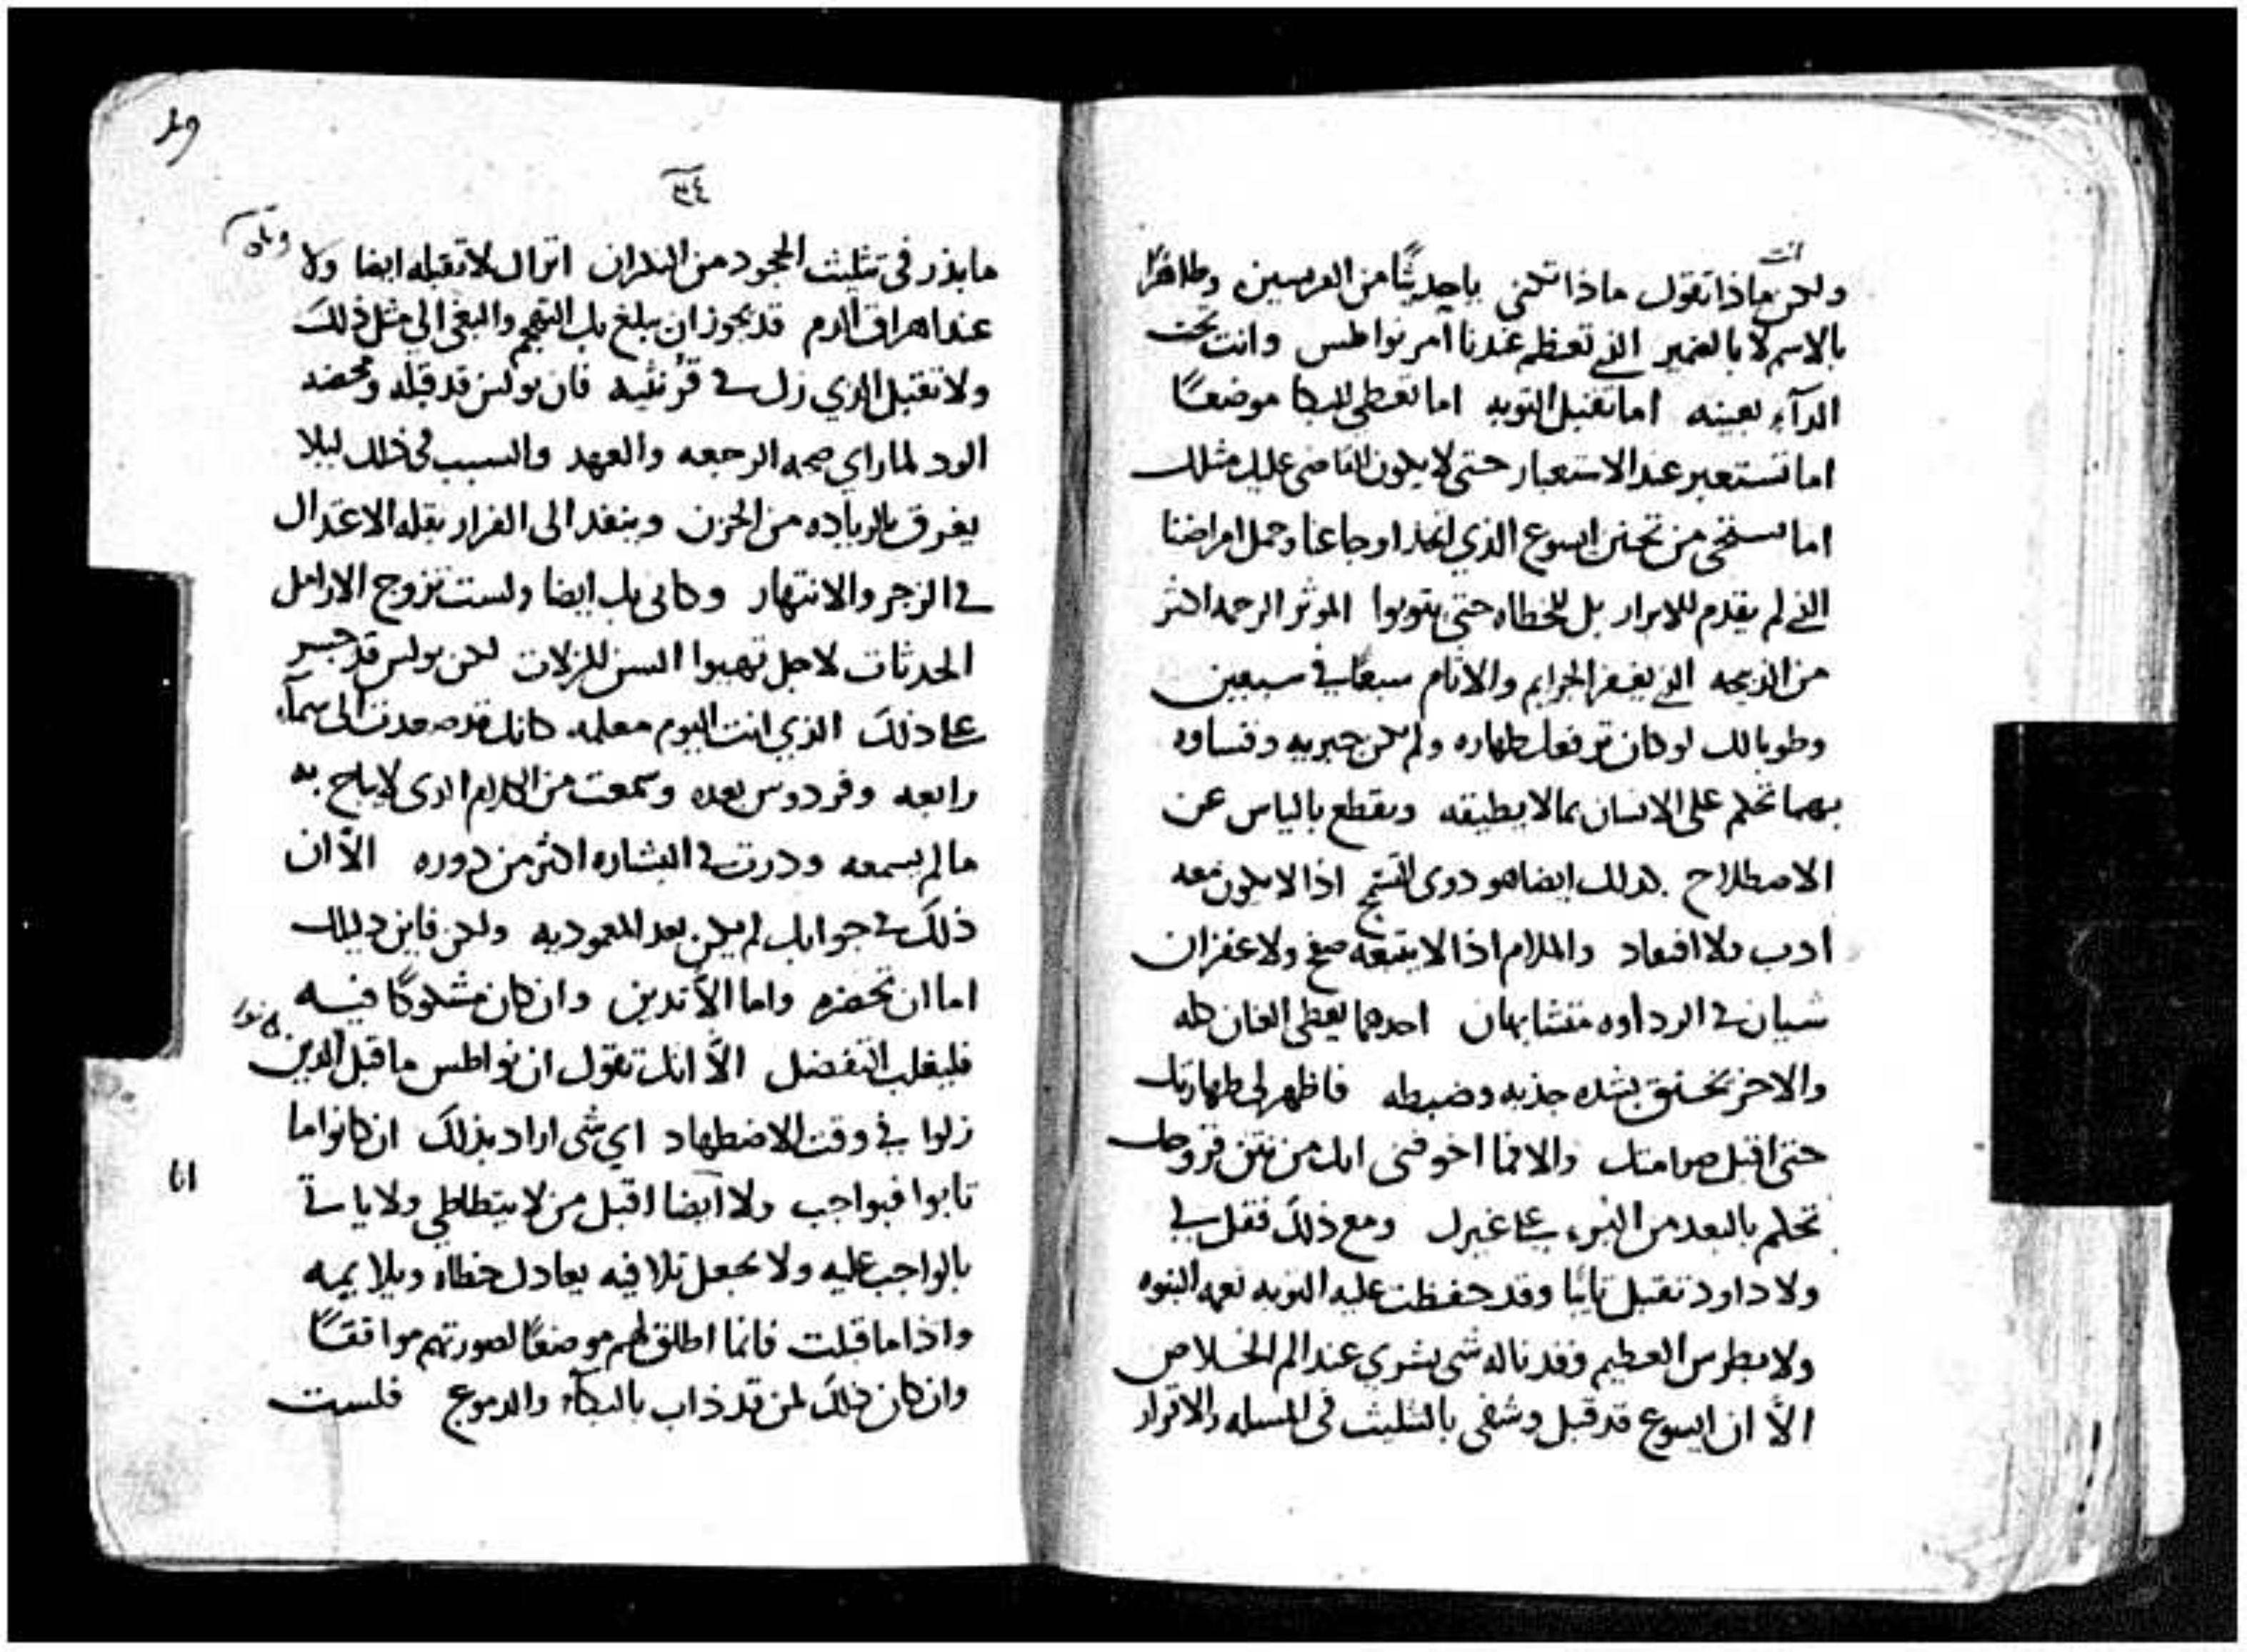 انت
ولكن ماذا تقول ماذا تكنى يا حديثًا من الفريسين وطاهرًا
بالاسم لا بالضمير الذى تعظم عندنا امر نواطس وانت تحت
الدآء بعينه اما تقبل التوبه اما تعطى للبكا موضعًا
اما تستعبر عند الاستعبار حتى لا يكون القاضى عليك مثلك
اما تستحى من تحنن ايسوع الذي اتخذ اوجاعنا وحمل امراضنا
الذى لم يقدم للابرار بل للخطاه حتى يتوبوا الموثر الرحمه اكثر
من الذبيحه الذى يغفر الجرايم والاثام سبعًا فى سبعين
وطوبا لك لو كان ترفعك طهاره ولم تكن جبريه وقساوه
بهما تحكم على الانسان بما لا يطيقه ويقطع بالياس عن
الاصطلاح كذلك ايضا هو دوى اذا لا يكون معه
ادب ولا افتعاد والملام اذا لا يتبعه صفح ولا غفران
شيان فى الرداوه متشابهان احدهما يعطى العنان كله
والاخر يخنق بشده جذبه وضبطه فاظهر لى طهارتك
حتى اقبل صرامتك والا فما اخوفنى انك من نتن قروحك
تحكم بالبعد من البرء على غيرك ومع ذلك فقل لى
ولا داود تقبل تايبًا وقد حفظت عليه التوبه نعمه النبوه
ولا بطرس العظيم وقد ناله شى بشري عند الم الخلاص
الاَّ ان ايسوع قد قبل وشفى بالتثليث فى المسله والاقرار
٣٤
ما بذر فى تثليث الجحود من النكران اتراك لا تقبله ايضا ولا
عند اهراق الدم قد يجوز ان يبلغ بك التهجم والبغى الى مثل ذلك
ولا تقبل الذي زل فى قرنثيه فان بولس قد قبله ومحضه
الود لما راي صحه الرجعه والعهد والسبب فى ذلك ليلا
يغرق بالزياده من الحزن وينفد الى الفرار بقله الاعتدال
فى الزجر والانتهار وكانى بك ايضا ولست تزوج الارامل
الحدثات لاجل تهيوا السن للزلات لكن بولس قد جسر
على ذلك الذي انت اليوم معلمه كانك قد صعدت الى سمآء
رابعه وفردوس بعده وسمعت من الكلام الذى لا يباح به
ما لم يسمعه ودرت فى البشاره اكثر من دوره الاَّ ان
ذلك فى جوابك لم يكن بعد المعموديه ولكن فاين دليلك
اما ان تحضره واما الاَّ تدين وان كان مشكوكًا فيه
فليغلب التفضل الاَّ انك تقول ان نواطس ما قبل الذين
زلوا فى وقت الاضطهاد اي شى اراد بذلك ان كانوا ما
تابوا فبواجب ولا ايضا اقبل من لا يتطاطى ولا ياتى
بالواجب عليه ولا يجعل تلافيه يعادل خطاه ويلايمه
واذا ما قبلت فانما اطلق لهم موضعًا لصورتهم موافقًا
وان كان ذلك لمن قد ذاب بالبكآء والدموع فلست
انا